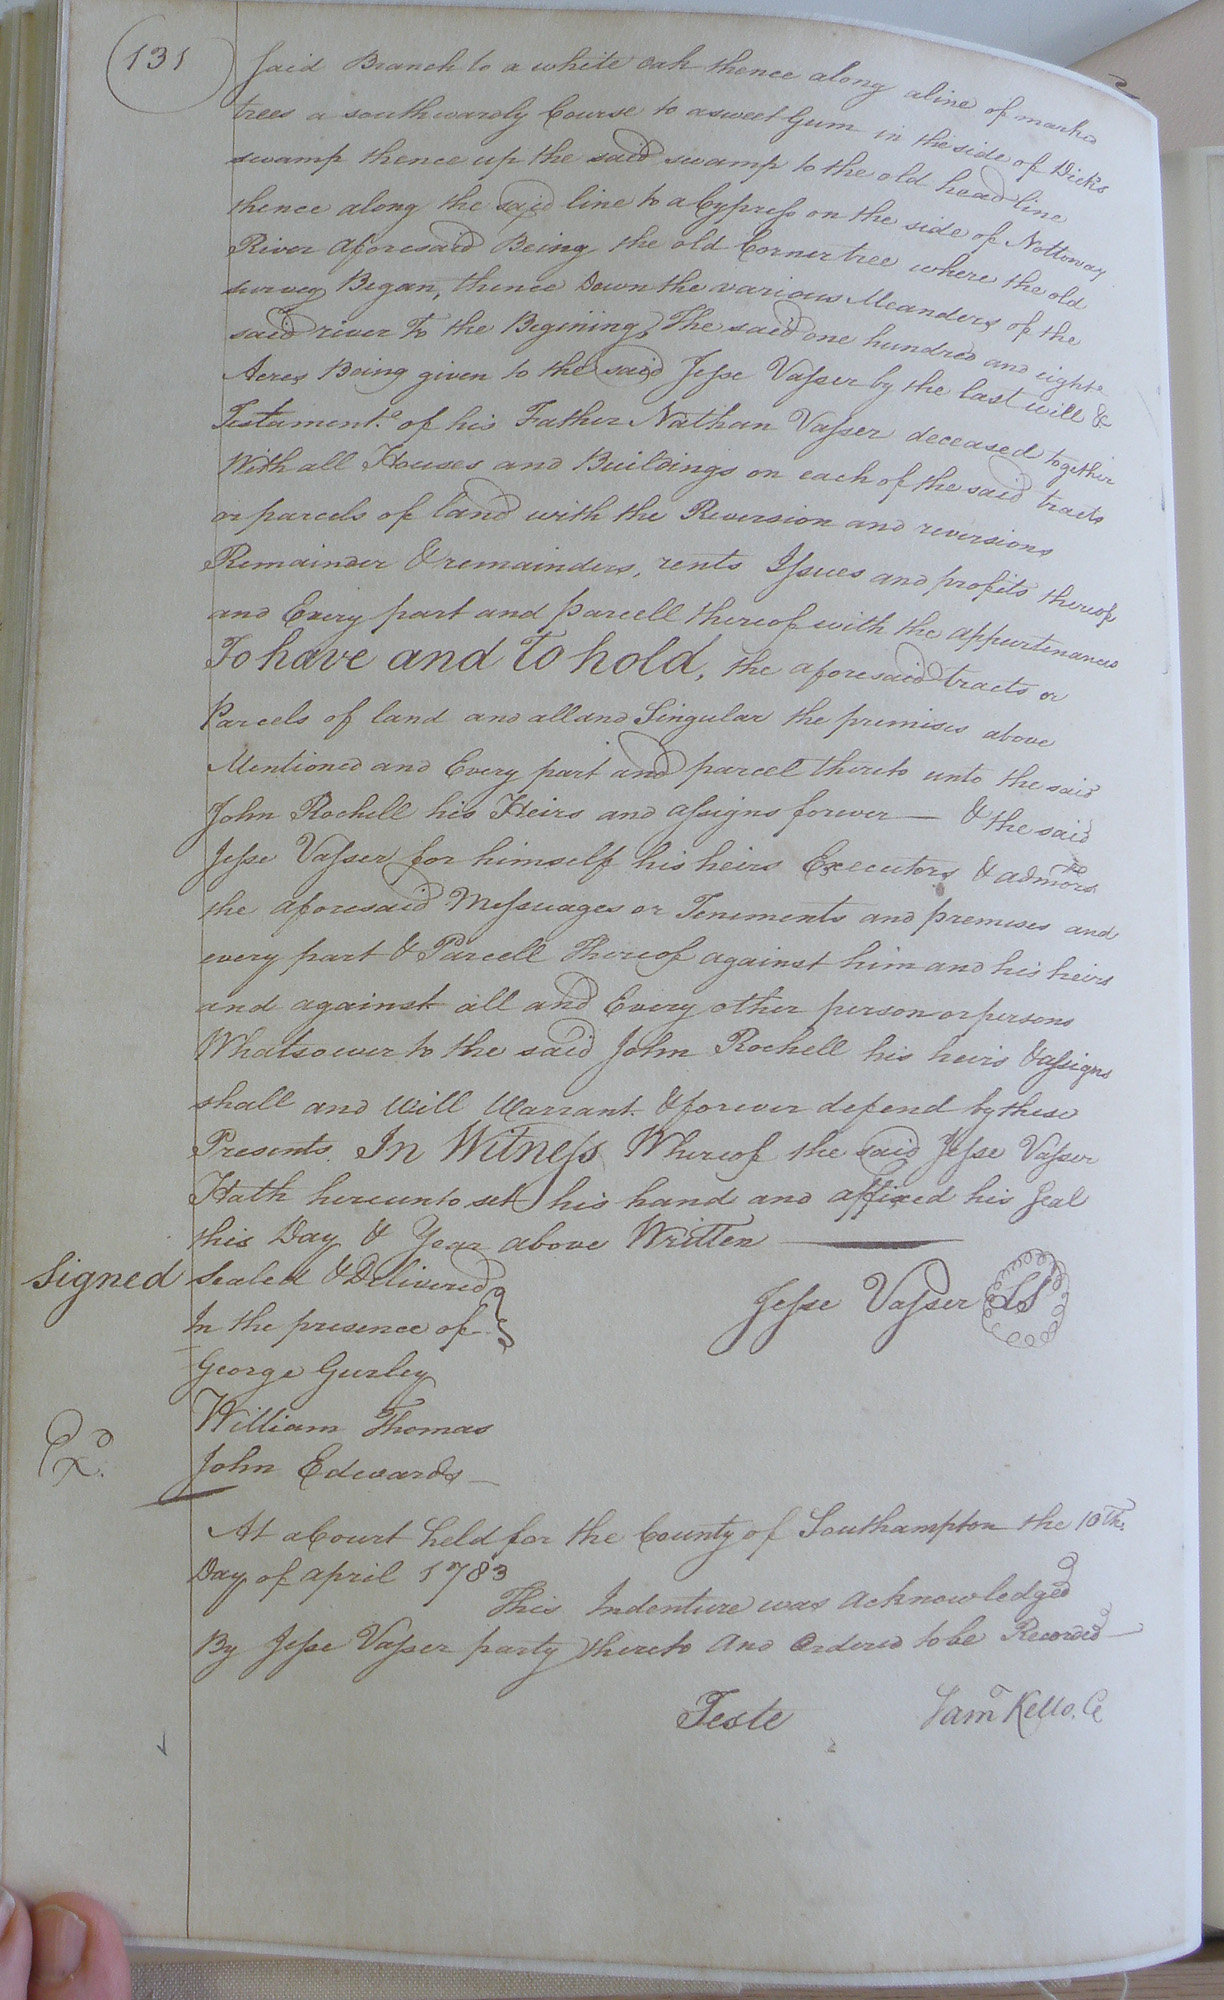 131
said Branch to a white oak thence along a line of marked
trees a southwardly Course to a sweet Gum in the side of Dicks
swamp thence up the said swamp to the old head line
thence along the said line to a Cypress on the side of Nottoway
River aforesaid Being the old Corner tree where the old
survey Began, thence Down the various Meanders of the
said river To the Begining, The said one hundred and eighte
Acres Being given to the said Jesse Vasser by the last will &
Testament. of his Father Nathan Vasser deceased together
With all Houses and Buildings on each of the said tracts
or parcels of land with the Reversion and reversions
Remainder & remainders, rents Issues and profits thereof
and Every part and parcell thereof with the appurtinances
To have and To hold, the aforesaid tracts or
Parcels of land and all and Singular the premises above
Mentioned and Every part and parcel thereto unto the said
John Rochell his Heirs and assigns forever — & the said
Jesse Vasser for himself his heirs Executors & admors
the aforesaid Messuages or Teniments and premises and
every part & Parcell Thereof against him and his heirs
and against all and Every other person or persons
Whatsoever to the said John Rochell his heirs & assigns
shall and Will Warrant. & forever defend by these
Presents. In Witness Whereof the said Jesse Vasser
Hath hereunto set his hand and affixed his Seal
this Day & Year above Written —
Signed Sealed & Delivered
Jesse Vasser LS
In the presence of
George Gurley
William Thomas
Exd.
John Edwards —
At a Court held for the County of Southampton the 10th.
Day of april 1783
This Indenture was acknowledged
By Jesse Vasser party thereto and Ordered to be Recorded —
Teste Saml Kello. C